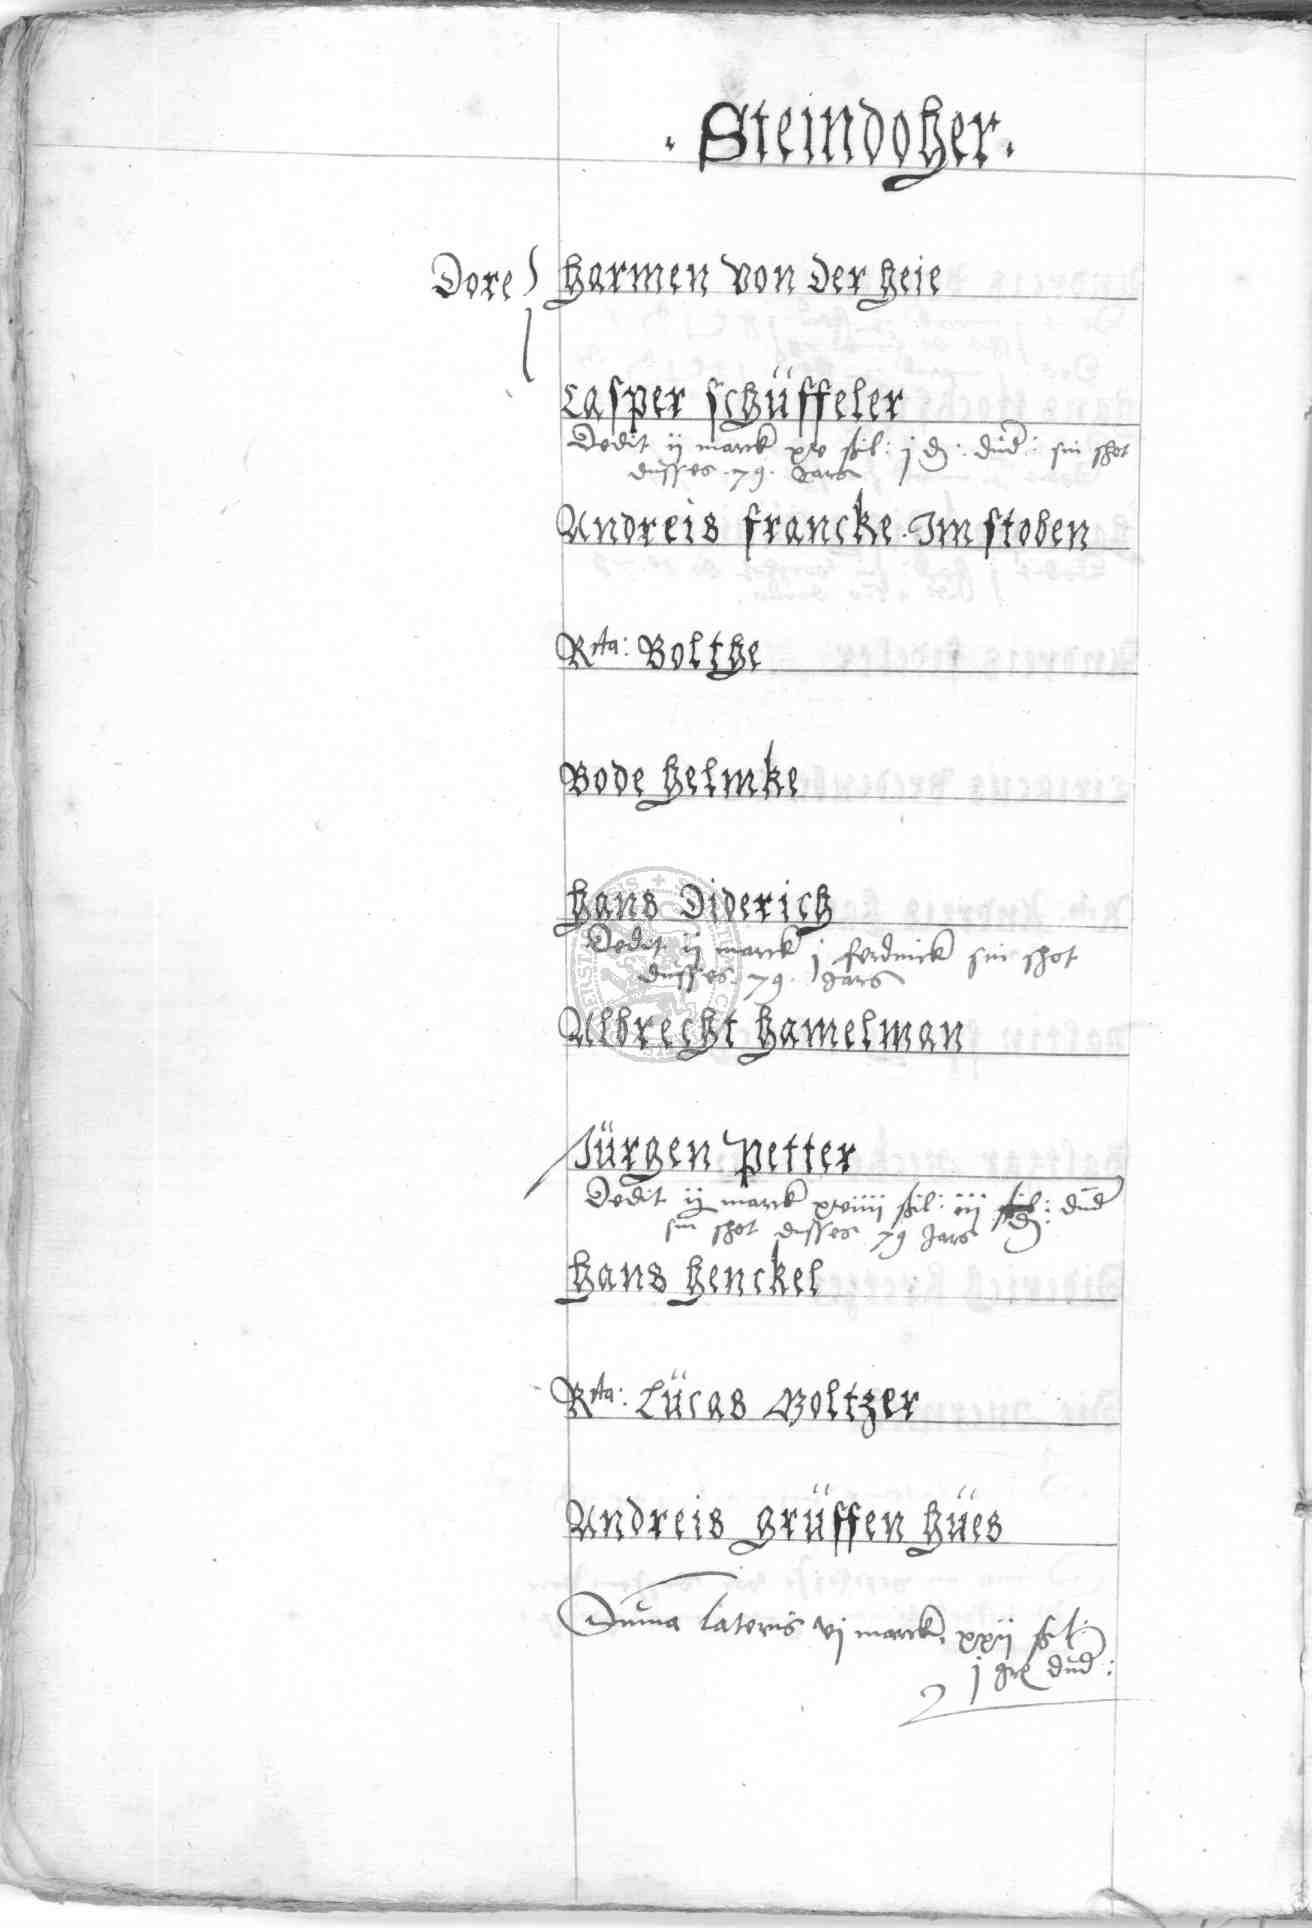 . Steindoher .
Dore
Harmen von der Heie
Casper Schüffeler
Dedit ij marck xv ßil: j d: düd: sin shot
düsses .79. Jars
Andreis Francke . Im stoben
Rta: Bolthe
Bode Helmke
Hans Diderich
Dedit ij marck j ferdinck sin shot
düsses .79. Jars
Albrecht Hamelman
Jürgen Petter
Dedit ij marck xviiij ßil: iij d: düd
sin shot dusses 79 Jars
Hans Henckel
Rta: Lücas Boltzer
Andreis Grüffen Hües
Suma lateris vj marck, xxij ßl
j gr düd: